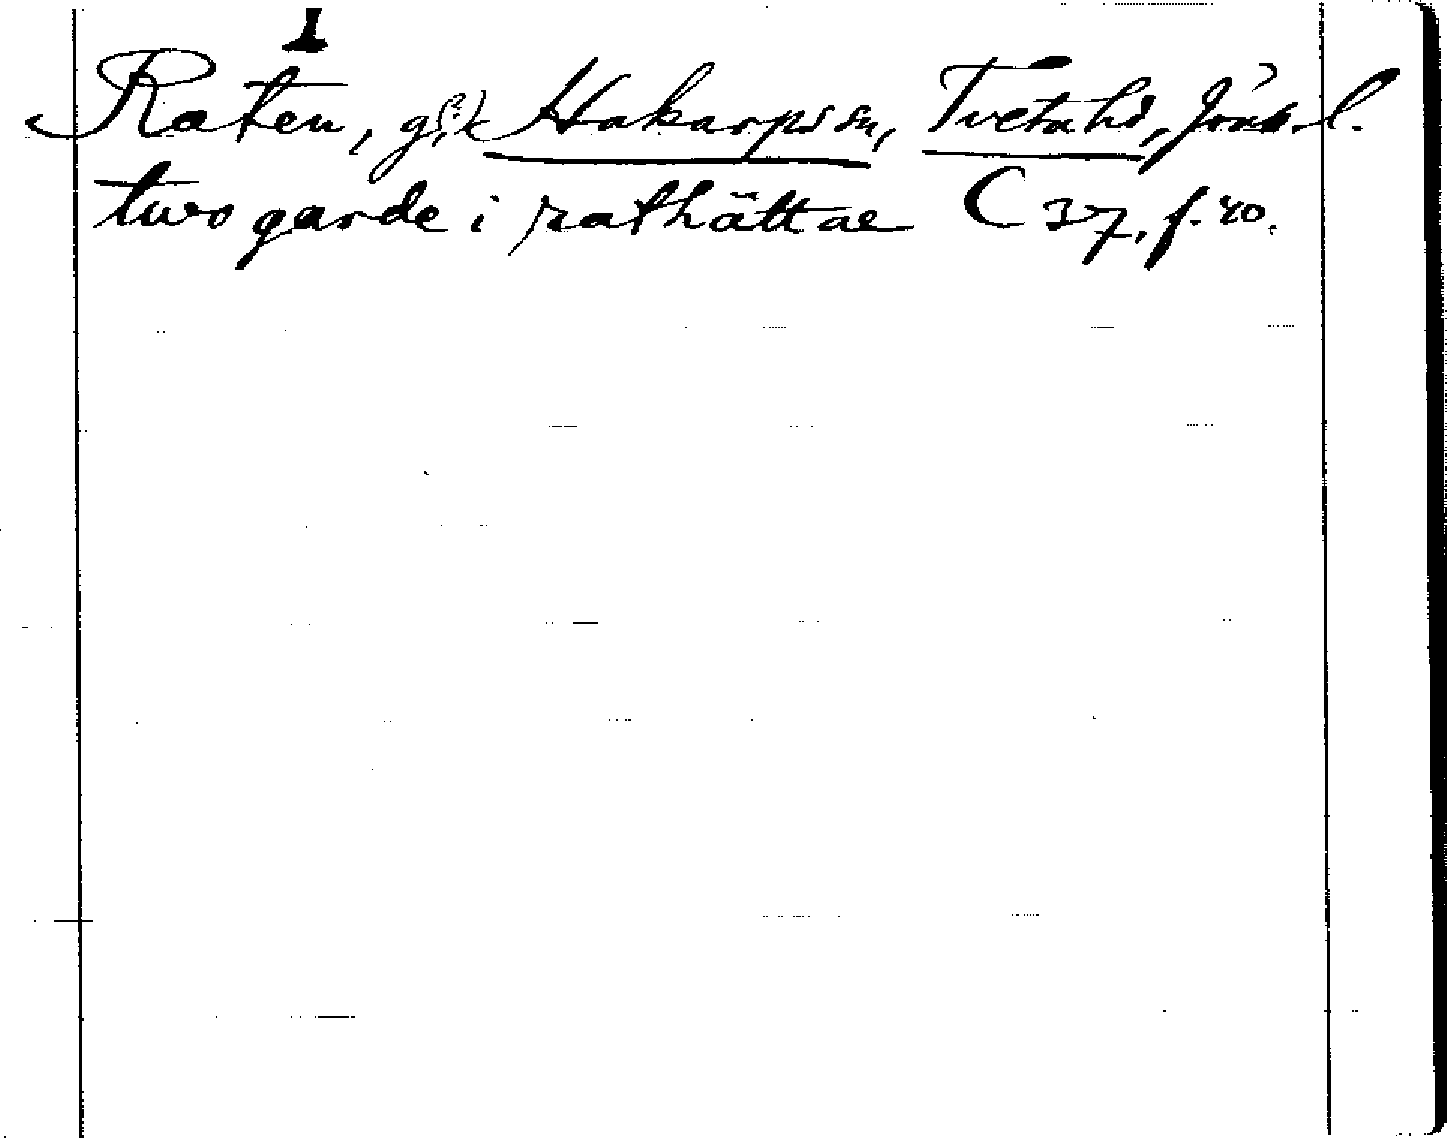 1
Raten, g(?)k Hakarps sn, Tveta hd, Jönk. l.
two garde i rathättae C 37, f. 40.